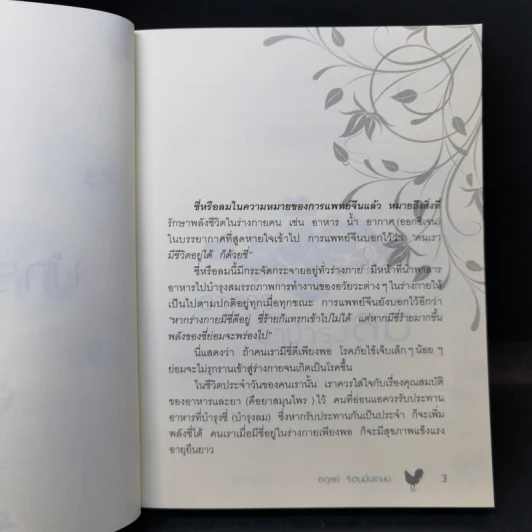 ชี่หรือลมในความหมายของการแพทย์จีนแล้ว หมายถึงสิ่งที่
รักษาพลังชีวิตในร่างกายคน เช่น อาหาร น้ำ อากาศ (ออกซิเจน)
ในบรรยากาศที่สูดหายใจเข้าไป การแพทย์จีนบอกไว้ว่า "คนเรา
มีชีวิตอยู่ได้ ก็ด้วยชี่"
ชี่หรือลมนี้มีกระจัดกระจายอยู่ทั่วร่างกาย มีหน้าที่นำพาสาร
อาหารไปบำรุงสมรรถภาพการทำงานของอวัยวะต่างๆ ในร่างกายให้
เป็นไปตามปกติอยู่ทุกเมื่อทุกขณะ การแพทย์จีนยังบอกไว้อีกว่า
"หากร่างกายมีชี่ดีอยู่ ชี่ร้ายก็แทรกเข้าไปไม่ได้ แต่หากมีชี่ร้ายมากขึ้น
พลังของชี่ย่อมจะพร่องไป"
นี่แสดงว่า ถ้าคนเรามีชี่ดีเพียงพอ โรคภัยไข้เจ็บเล็กๆ น้อยๆ
ย่อมจะไม่รุกรานเข้าสู่ร่างกายจนเกิดเป็นโรคขึ้น
ในชีวิตประจำวันของคนเรานั้น เราควรใส่ใจกับเรื่องคุณสมบัติ
ของอาหารและยา (คือยาสมุนไพร) ไว้ คนที่อ่อนแอควรรับประทาน
อาหารที่บำรุงชี่ (บำรุงลม) ซึ่งหากรับประทานกันเป็นประจำ ก็จะเพิ่ม
พลังชี่ได้ คนเราเมื่อมีชี่อยู่ในร่างกายเพียงพอ ก็จะมีสุขภาพแข็งแรง
อายุยืนยาว
อดุลย์ รัตนมั่นเกษม 3